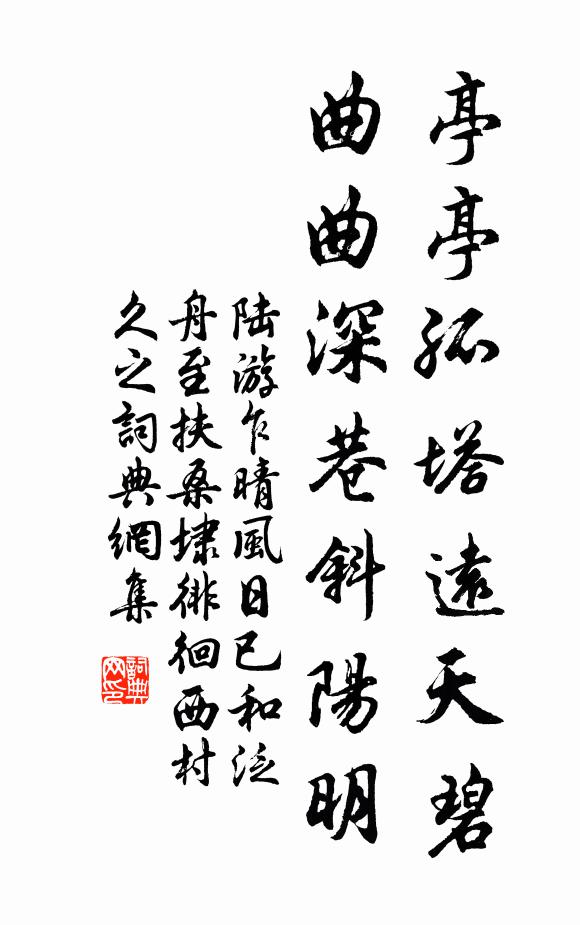 亭亭孤塔遠天碧
曲曲深巷斜陽明
陆游乍晴風日已和泛
舟至扶桑埭徘徊西村
久之詞典網集
詞典
网印